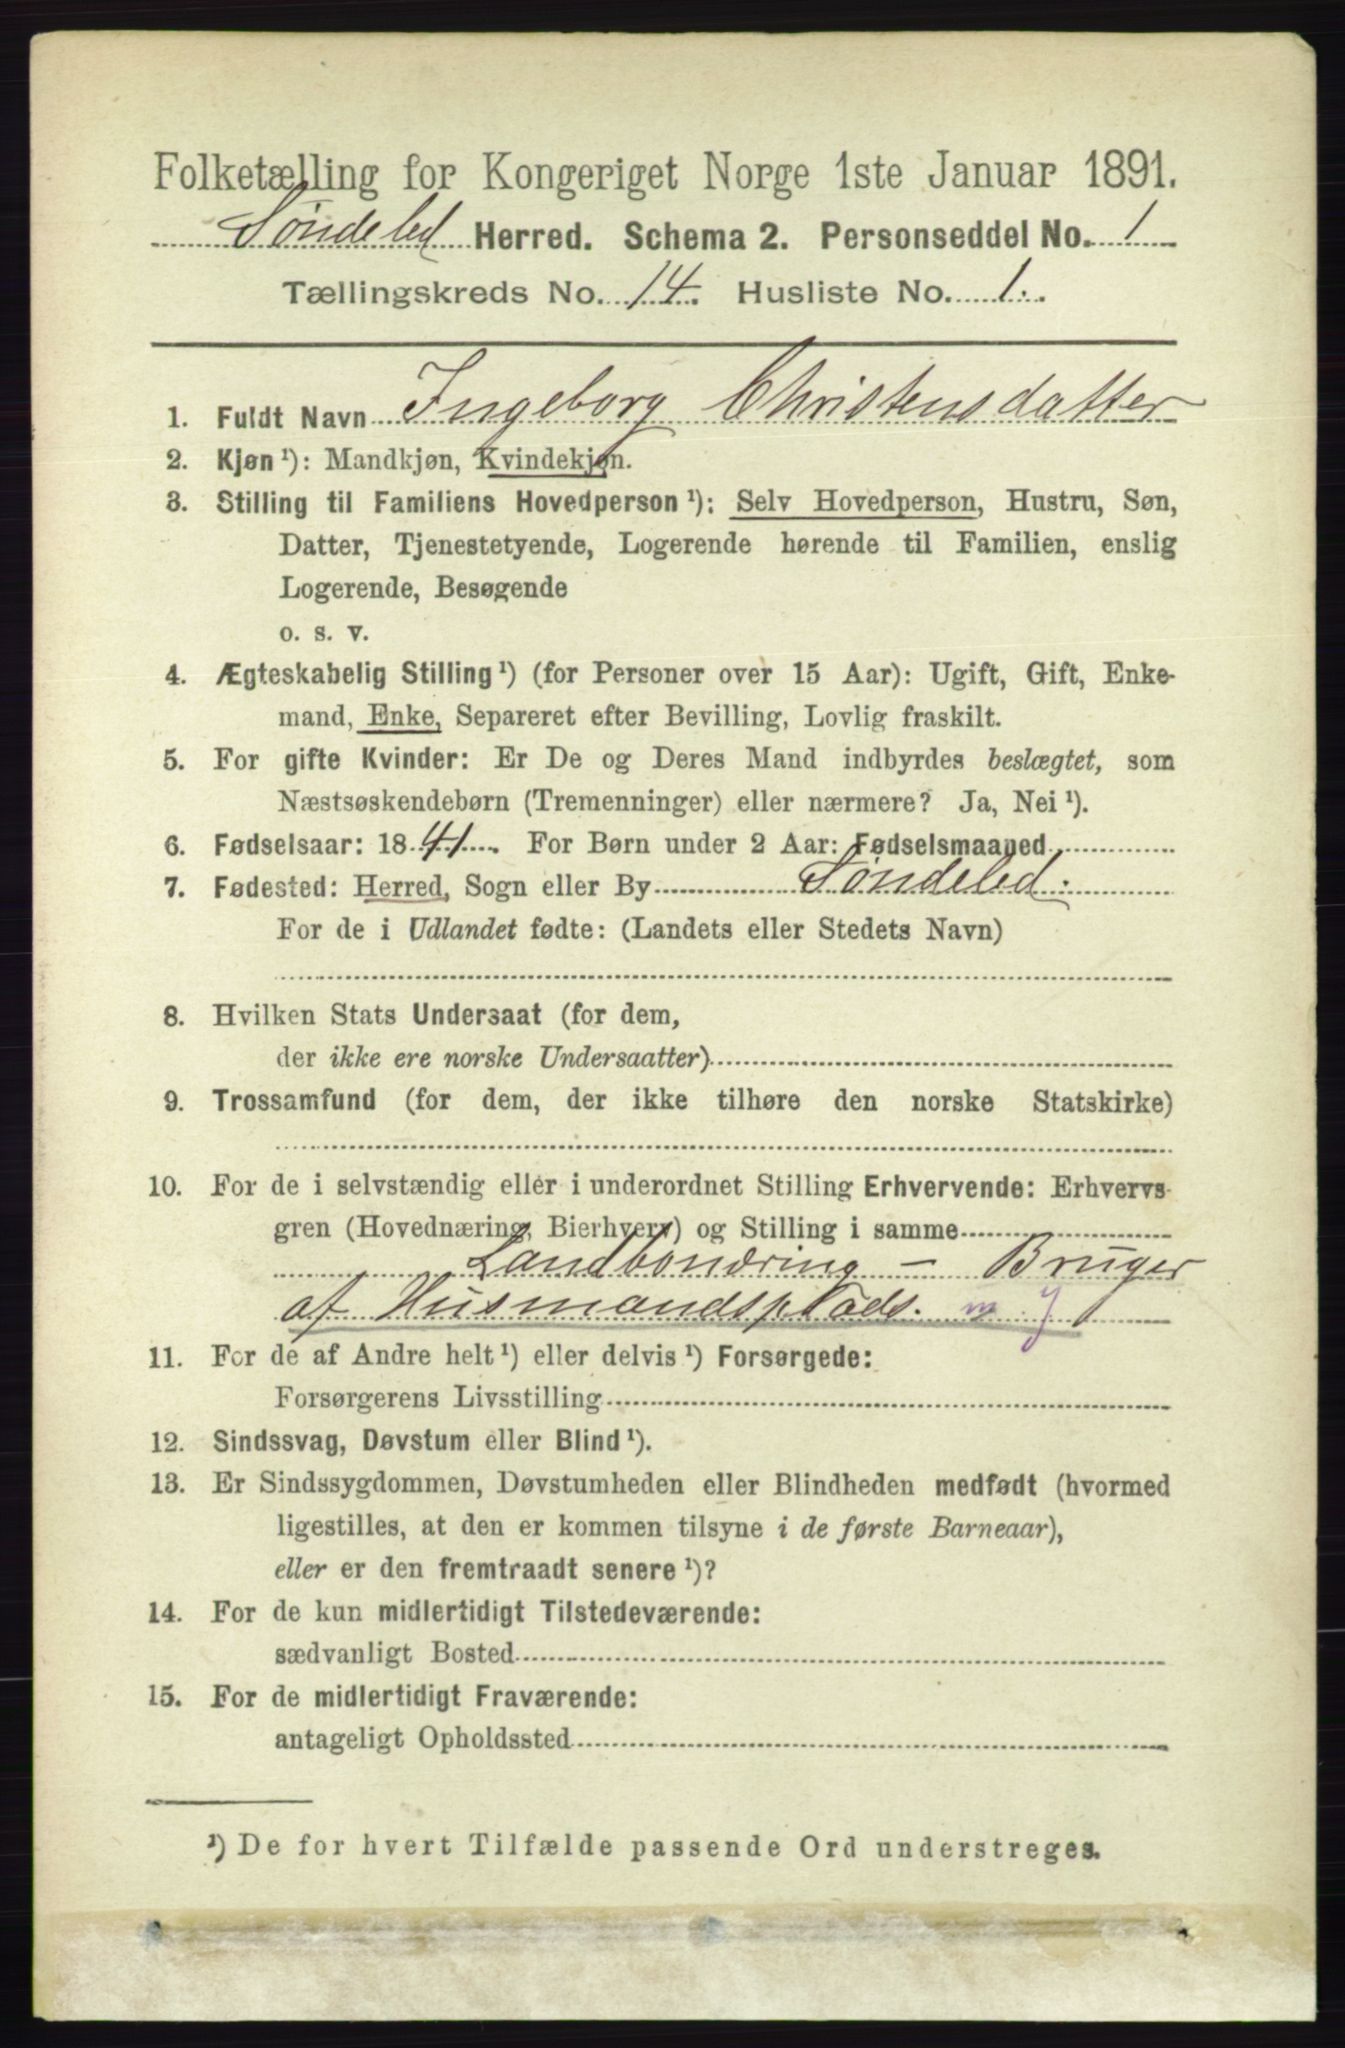 Folketælling for Kongeriget Norge 1ste Januar 1891.
Søndeled Herred. Schema 2. Personseddel No. 1
Tællingskreds No. 14. Husliste No. 1.
1. Fuldt Navn Ingeborg Christensdatter
2. Kjøn¹): Mandkjøn, Kvindekjøn.
3. Stilling til Familiens Hovedperson¹): Selv Hovedperson, Hustru, Søn,
Datter, Tjenestetyende, Logerende hørende til Familien, enslig
Logerende, Besøgende
o. s. v.
4. Ægteskabelig Stilling¹) (for Personer over 15 Aar): Ugift, Gift, Enke-
mand, Enke, Separeret efter Bevilling, Lovlig fraskilt.
5. For gifte Kvinder: Er De og Deres Mand indbyrdes beslægtet, som
Næstsøskendebørn (Tremenninger) eller nærmere? Ja, Nei¹).
6. Fødselsaar: 1841. For Børn under 2 Aar: Fødselsmaaned
7. Fødested: Herred, Sogn eller By Søndeled.
For de i Udlandet fødte: (Landets eller Stedets Navn)
8. Hvilken Stats Undersaat (for dem,
der ikke ere norske Undersaatter)
9. Trossamfund (for dem, der ikke tilhøre den norske Statskirke)
10. For de i selvstændig eller i underordnet Stilling Erhvervende: Erhvervs-
gren (Hovednæring, Bierhverv) og Stilling i samme
Landbonæring – Bruger
af Husmandsplads. m j
11. For de af Andre helt¹) eller delvis¹) Forsørgede:
Forsørgerens Livsstilling
12. Sindssvag, Døvstum eller Blind¹).
13. Er Sindssygdommen, Døvstumheden eller Blindheden medfødt (hvormed
ligestilles, at den er kommen tilsyne i de første Barneaar),
eller er den fremtraadt senere¹)?
14. For de kun midlertidigt Tilstedeværende:
sædvanligt Bosted
15. For de midlertidigt Fraværende:
antageligt Opholdssted
¹) De for hvert Tilfælde passende Ord understreges.